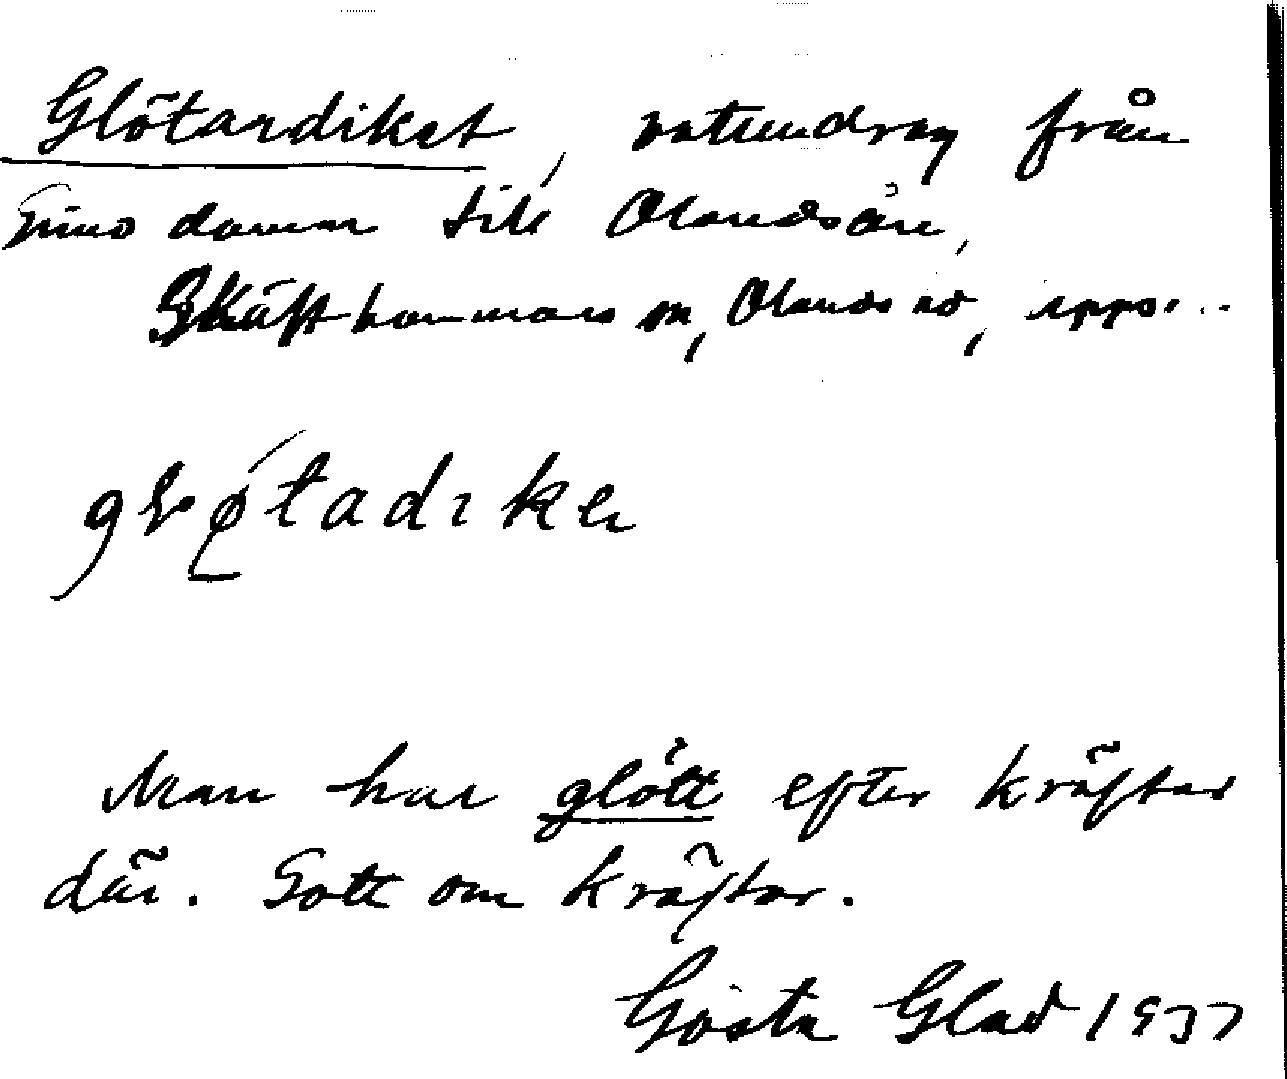 Glötardiket, vattendrag från
Gimo damm till Olandsån,
Skäfthammars sn, Olands hd, Uppl.
gløtadıke
Man har glött efter kräftor
där. Gott om kräftor.
Gösta Glad 1937